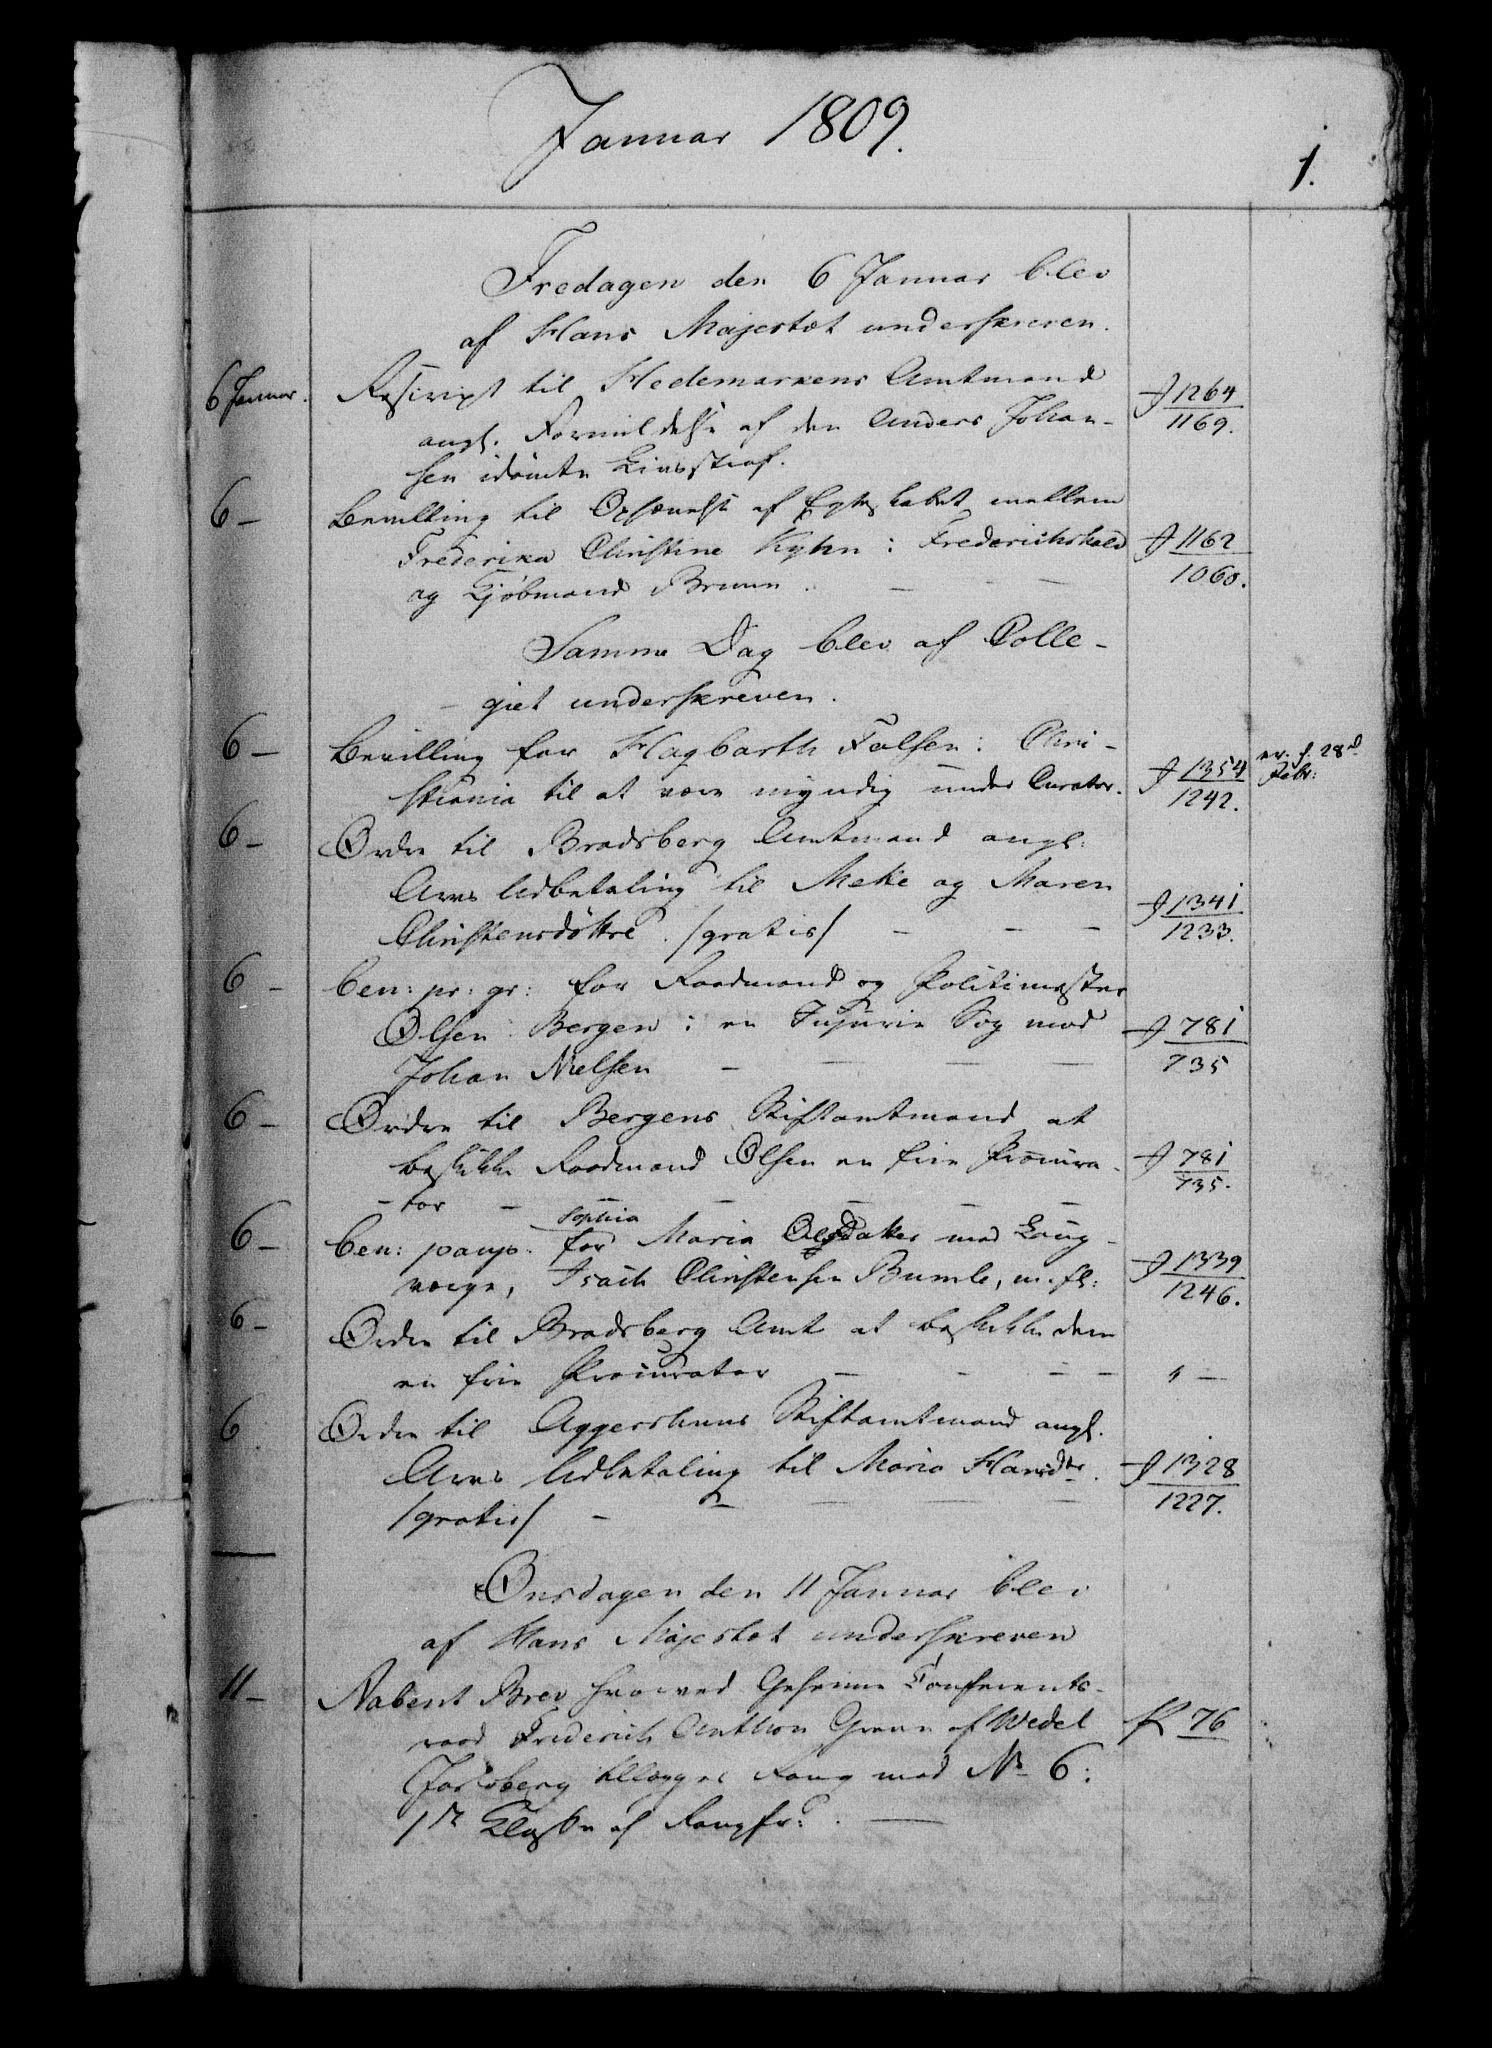 Januar 1809.
1.
Fredagen den 6 Januar blev
af Hans Majestæt underskreven.
6 Januar. Rescript til Hedemarkens Amtmand
angl. Formildelse af den Anders Johan-
sen idömte Livsstraf.
J 1264
1169.
6 – Bevilling til Ophævelse af Egteskabet mellem
Frederica Christine Kyhn i Frederichshald
og Kjöbmand Bruun. – – –
J 1162
1060.
Samme Dag blev af Colle-
giet underskreven.
6 – Bevilling for Hagbarth Falsen i Chri-
stiania til at være myndig under Curator.
J 1354
1242.
28d
Febr:
6 – Ordre til Bradsberg Amtmand angl:
Arvs Udbetaling til Mette og Maren
Christensdöttre. /gratis/ – – –
J 1341
1233.
6 – ben: pr: gr: for Raadmand og Politimester
Olsen i Bergen i en Injurie Sag mod
Johan Nielsen – – – –
J 781
735
6 – Ordre til Bergens Stiftamtmand at
beskikke Raadmand Olsen en frie Procura-
tor – – – – –
J 781
735.
6 – ben: paup: for Sophia Maria med Laug-
værge, Isach Christensen Bumle, m. fl:
J 1339
1246.
6 – Ordre til Bradsberg Amt at beskikke dem
en frie Procurator – – – –
" –
6 Ordre til Aggershuus Stiftamtmand angl.
Arvs Udbetaling til Maria Hansdtr.
/gratis/ – – – – –
J 1328
1227.
Onsdagen den 11 Januar blev
af Hans Majestæt underskreven
11 – Aabent Brev hvorved Geheime Conferents-
raad Friderich Anthon Greve af Wedel
Jarlsberg tillægges Rang med No 6 i
1te Classe af Rangfr: . –
76